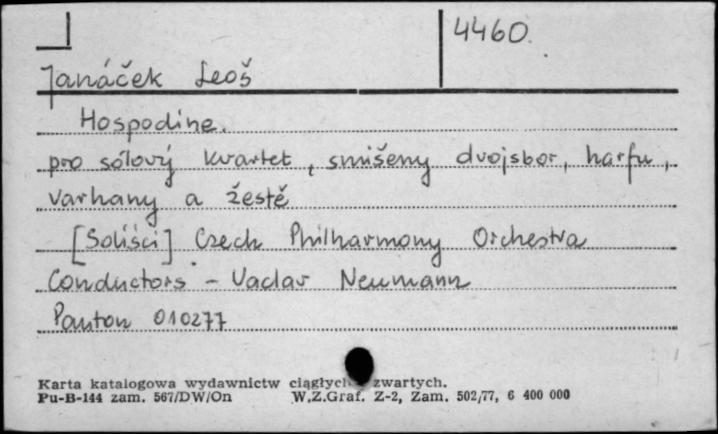 4460.
Janáček Leoš
Hospodine.
pro sólový kvartet, smišeny dvojsbor, harfu,
varhany a žestě
[Soliści] Czech Philharmony Orchestra
Conductors - Vaclav Neumann
Panton 010277
Karta katalogowa wydawnictw zwartych.
Pu-B-144 zam. 567/DW/On W.Z.Graf. Z-2, Zam. 502/77, 6 400 000